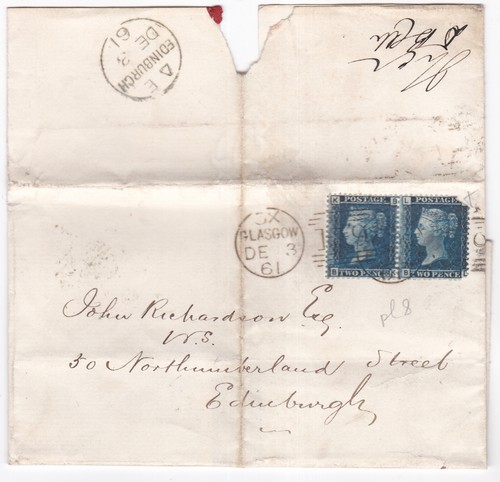 Δ E
EDINBURGH
DE 3
61
5X
GLASGOW
DE 3
61
K B
POSTAGE
TWO PENCE
B K
L B
POSTAGE
TWO PENCE
B
pl 8
John Richardson Esq.
W.S.
30 Northumberland Street
Edinburgh